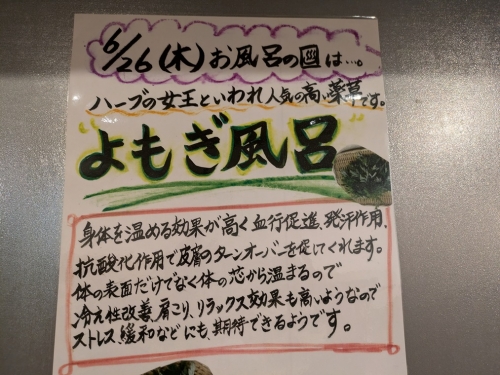 6/26(木)お風呂の日は…。
ハーブの女王といわれ人気の高い薬草です。
"よもぎ風呂"
身体を温める効果が高く血行促進、発汗作用、
抗酸化作用で皮膚のターンオーバーを促してくれます。
体の表面だけでなく体の芯から温まるので
冷え性改善、肩こり、リラックス効果も高いようなので
ストレス緩和などにも、期待できるようです。